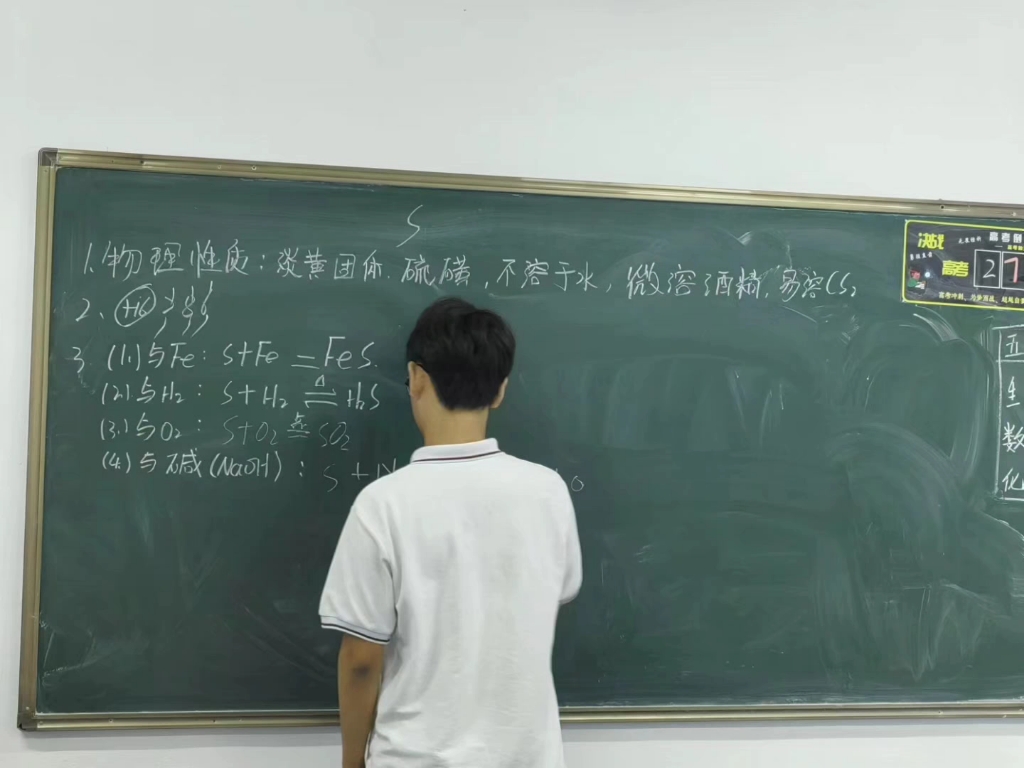 S
1.物理性质:淡黄固体.硫磺,不溶于水,微溶酒精,易溶CS₂
2、+16
3 (1.)与Fe: S+Fe = FeS.
(2.)与H₂: S+H₂ ≜ H₂S
(3.)与O₂: S+O₂ = SO₂
(4.)与碱(NaOH): S+N
决战
高考
2 7
五
生
数
化